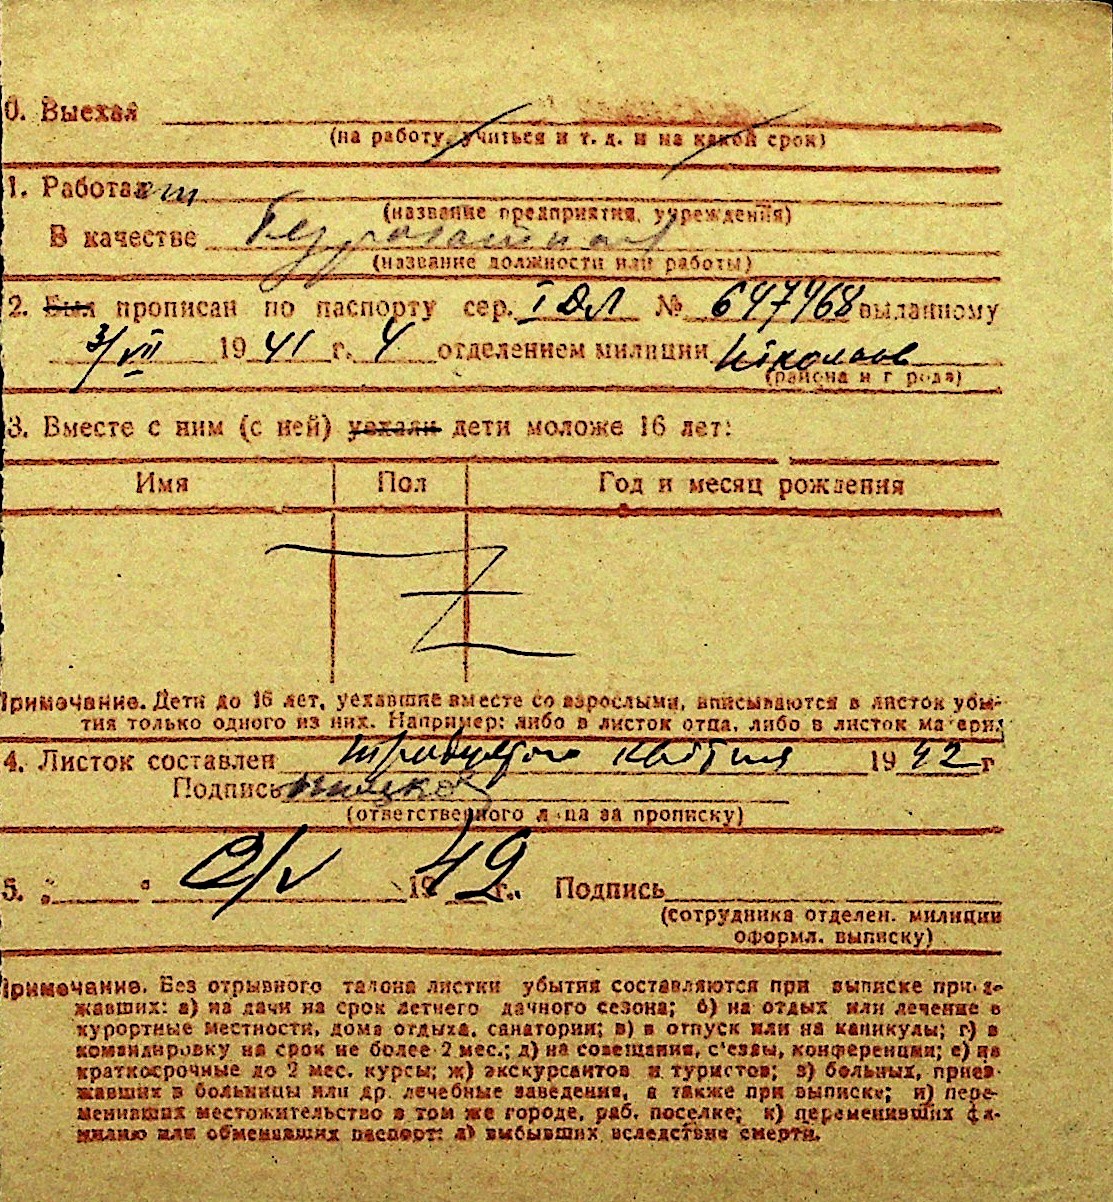 0. Выехал
(на работу, учиться и т. д. и на какой срок)
1. Работает
(название предприятия, учреждения)
В качестве
(название должности или работы)
2. Был прописан по паспорту сер. I ДЛ № 647468 выданному
3/VII 1941 г. 4 отделением милиции
(района и города)
3. Вместе с ним (с ней) уехали дети моложе 16 лет:
Имя Пол Год и месяц рождения
Z
Примечание. Дети до 16 лет, уехавшие вместе со взрослыми, вписываются в листок убы-
тия только одного из них. Например: либо в листок отца, либо в листок матери.
4. Листок составлен квітня 1942 г
Подпись
(ответственного лица за прописку)
5. „ “ 2/V 1942 г. Подпись
(сотрудника отделен. милиции
оформл. выписку)
Примечание. Без отрывного талона листки убытия составляются при выписке приез-
жавших: а) на дачи на срок летнего дачного сезона; б) на отдых или лечение в
курортные местности, дома отдыха, санатории; в) в отпуск или на каникулы; г) в
командировку на срок не более 2 мес.; д) на совещания, с'езды, конференции; е) на
краткосрочные до 2 мес. курсы; ж) экскурсантов и туристов; з) больных, приез-
жавших в больницы или др. лечебные заведения, а также при выписке; и) пере-
менивших местожительство в том же городе, раб. поселке; к) переменивших фа-
милию или обменивших паспорт; л) выбывших вследствие смерти.